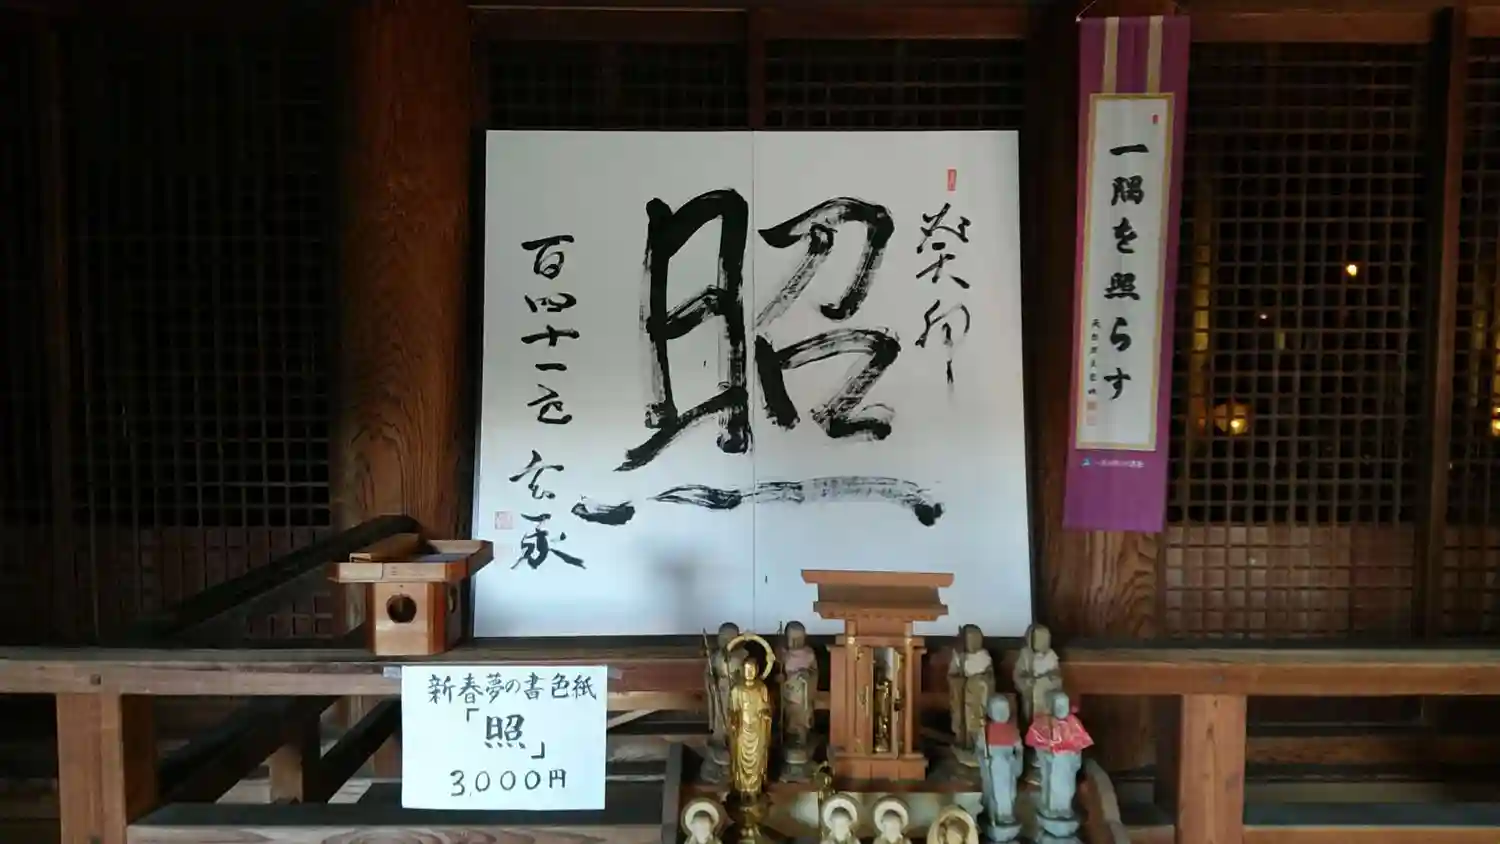 癸卯
照
百四十一叟 玄承
一隅を照らす
新春夢の書色紙
「照」
3,000円